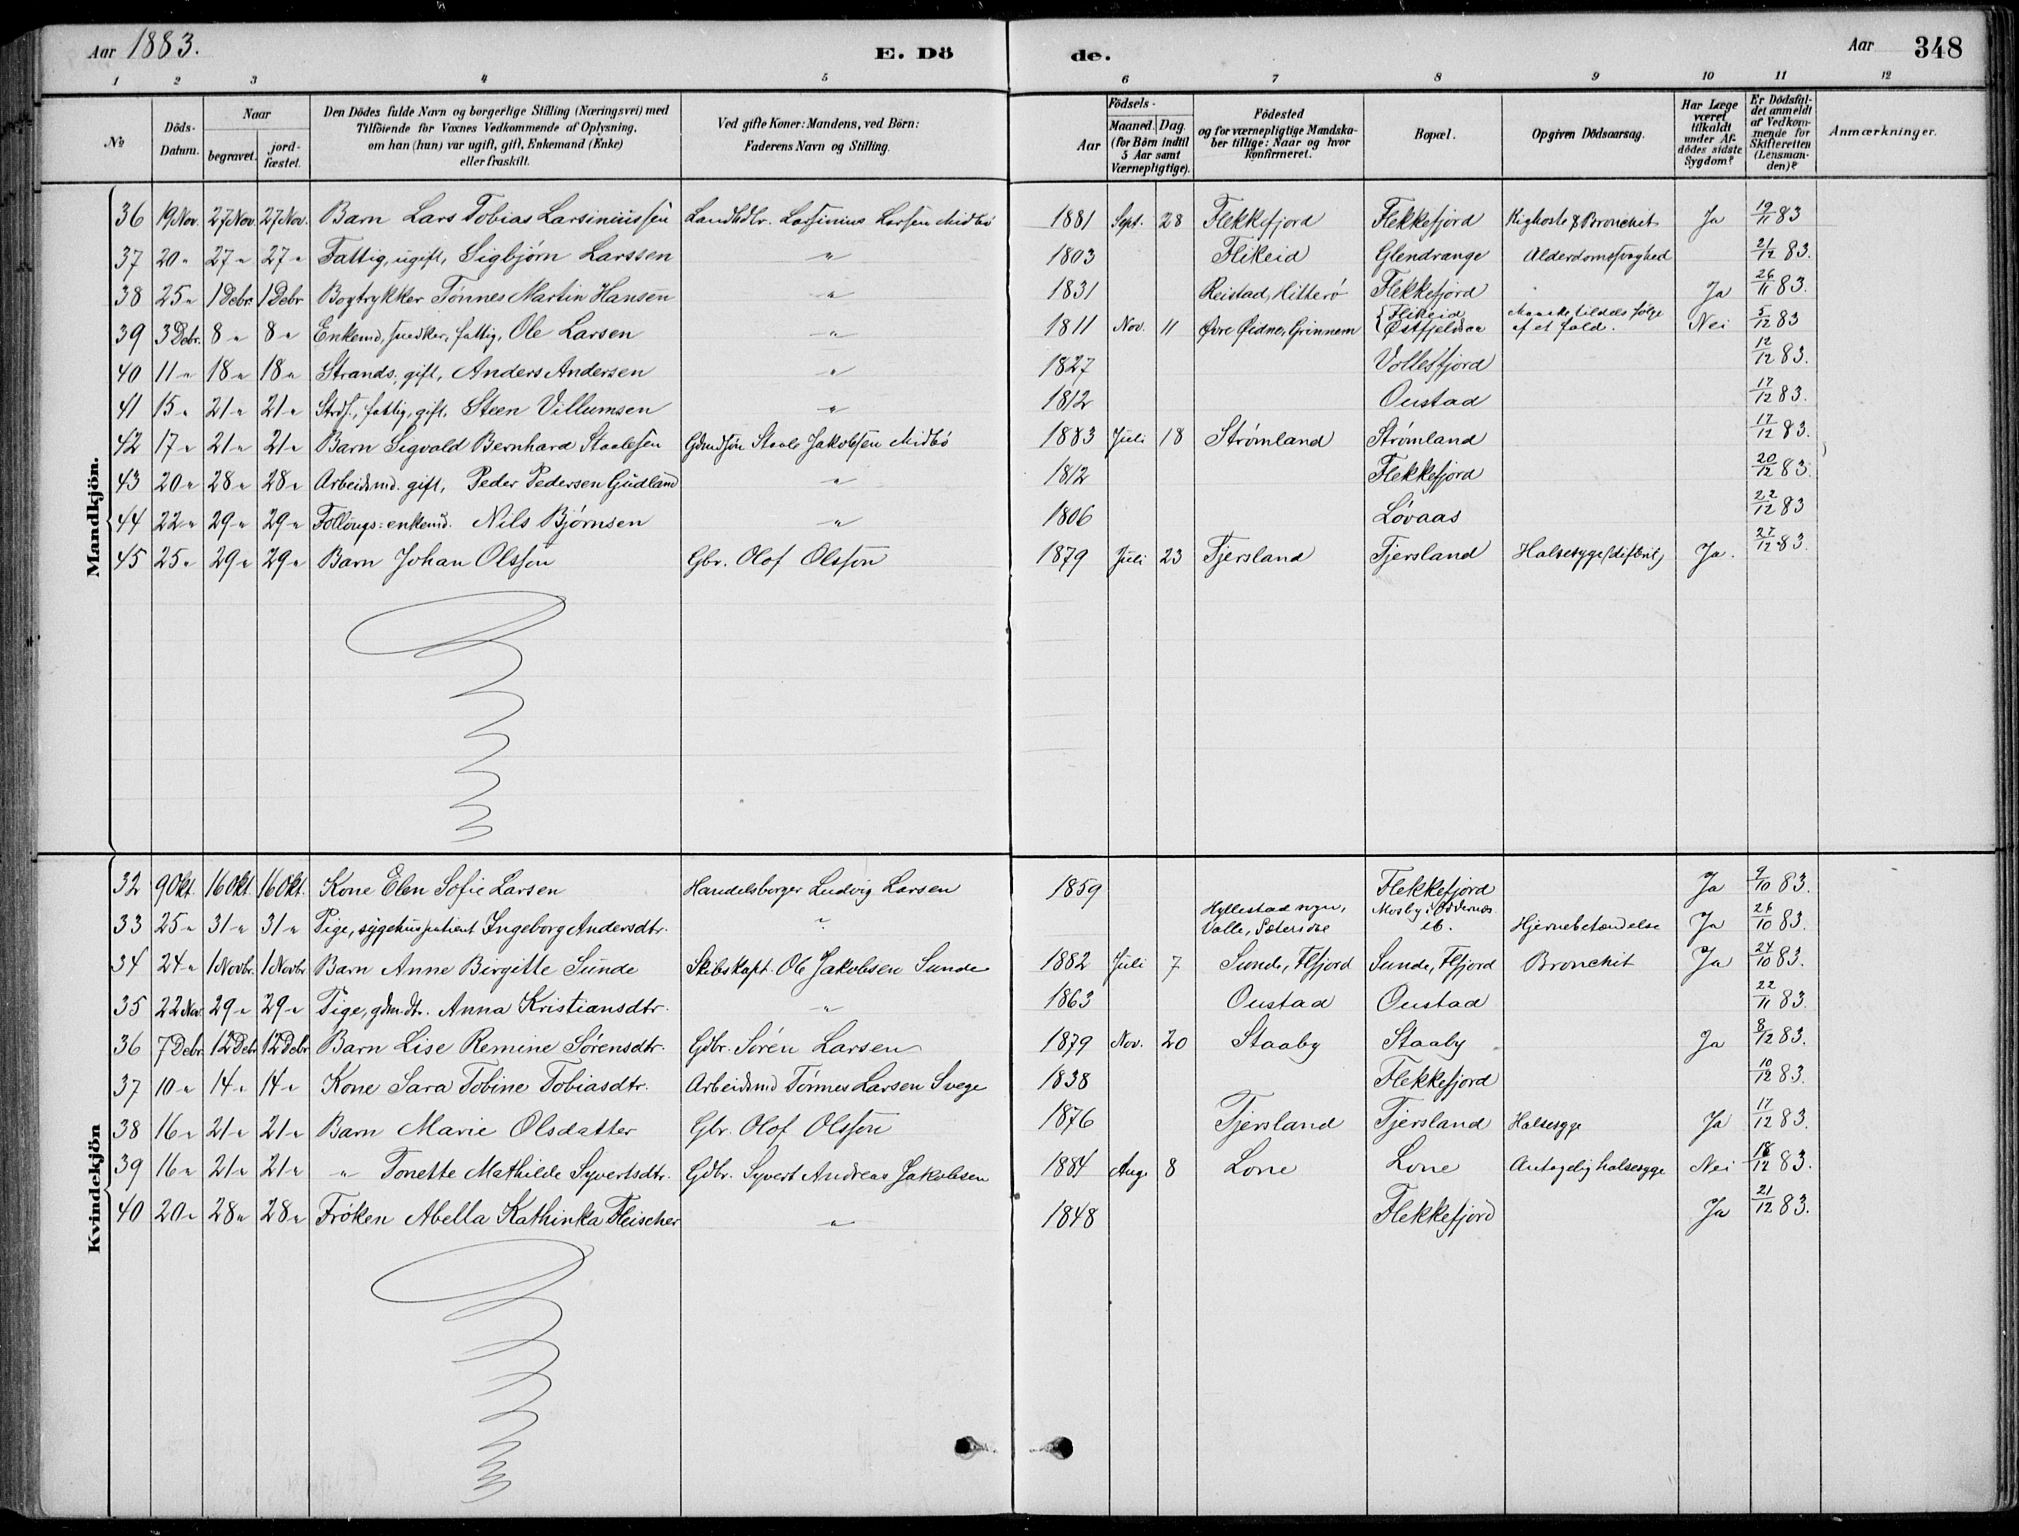 Aar 1883. E. Dö de. Aar 348
1 2 3 4 5 6 7 8 9 10 11 12
№ Döds-Datum. Naar begravet. jord-fæstet. Den Dödes fulde Navn og borgerlige Stilling (Næringsvei) med Tilföiende for Voxnes Vedkommende af Oplysning, om han (hun) var ugift, gift, Enkemand (Enke) eller fraskilt. Ved gifte Koner: Mandens, ved Börn: Faderens Navn og Stilling. Födsels- Aar Maaned. Dag. (for Börn indtil 5 Aar samt Værnepligtige). Födested og for værnepligtige Mandskaber tillige: Naar og hvor konfirmeret. Bopæl. Opgiven Dödsaarsag. Har Læge været tilkaldt under Afdödes sidste Sygdom? Er Dödsfaldet anmeldt af Vedkommende for Skifteretten (Lensmanden)? Anmærkninger.
Mandkjön.
36 19 Nov. 27 Nov. 27 Nov. Barn Lars Tobias Larsiniussen Landhdlr. Larsinius Larsen Midbö 1881 Sept. 28 Flekkefjord Flekkefjord Kighoste & Bronchit Ja 19/11 83
37 20 " 27 " 27 " Fattig, ugift, Sigbjørn Larssen " 1803 Flikeid Glendrange Alderdomssvaghed 21/12 83.
38 25 " 1 Debr. 1 Debr Bogtrykker Tønnes Martin Hansen " 1831 Reistad, Hitterö Flekkefjord " Ja 26/11 83.
39 3 Debr. 8 " 8 " Enkemd, snedker, fattig, Ole Larsen " 1811 Nov. 11 Øvre Øidne, Grinnem { Flikeid Østfjeldaa Maaske tildels følge af et fald. Nei 5/12 83
40 11 " 18 " 18 " Strands., gift, Anders Andersen " 1827 Vollesfjord 12/12 83.
41 15 " 21 " 21 " Strds., fattig, gift, Steen Villumsen " 1812 Oustad 17/12 83.
42 17 " 21 " 21 " Barn Sigvald Bernhard Staalesen Gdmdsøn Staale Jakobsen Midbö 1883 Juli 18 Strømland Strømland 17/12 83.
43 20 " 28 " 28 " Arbeidsmd. gift, Peder Pedersen Gudland " 1812 Flekkefjord 20/12 83.
44 22 " 29 " 29 " Follöugs-enkemd. Nils Bjørnsen " 1806 Løvaas 22/12 83
45 25 " 29 " 29 " Barn Johan Olsson Gbr. Olof Olsson 1879 Juli 23 Tjersland Tjersland Halssyge (difterit) Ja. 27/12 83.
Kvindekjön
32 9 Okt. 16 Okt. 16 Okt. Kone Elen Sofie Larsen Handelsborger Ludvig Larsen 1859 Flekkefjord Ja 9/10 83.
33 25 " 31 " 31 " Pige, sygehuspatient Ingeborg Andersdtr. " Hyllestad sogn, Valle, Sætersdal Mosby i Oddernæs Hjernebetændelse Ja 26/10 83.
34 24 " 1 Novbr. 1 Novbr Barn Anne Birgitte Sunde Skibskapt. Ole Jakobsen Sunde 1882 Juli 7 Sunde, Flfjord Sunde, Flfjord Bronchit Ja 24/10 83.
35 22 Nov. 29 " 29 " Pige, gdmdtr. Anna Kristiansdtr. " 1863 Oustad Oustad 22/11 83.
36 7 Debr. 12 Debr 12 Debr Barn Lise Remine Sørensdtr. Gdbr. Søren Larsen 1879 Nov. 20 Staaby Staaby Ja 8/12 83.
37 10 " 14 " 14 " Kone Sara Tobine Tobiasdtr. Arbeidsmd Tønnes Larsen Svege 1838 Flekkefjord 10/12 83.
38 16 " 21 " 21 " Barn Marie Olsdatter Gbr. Olof Olsson 1876 Tjersland Tjersland Halssyge Ja 17/12 83.
39 16 " 21 " 21 " " Tonette Mathilde Syvertsdtr. Gdbr. Syvert Andreas Jakobsen 1884 Aug. 8 Lone Lone Antagelig halssyge Nei 18/12 83.
40 20 " 28 " 28 " Frøken Abella Kathinka Fleischer " 1848 Flekkefjord Ja 21/12 83.